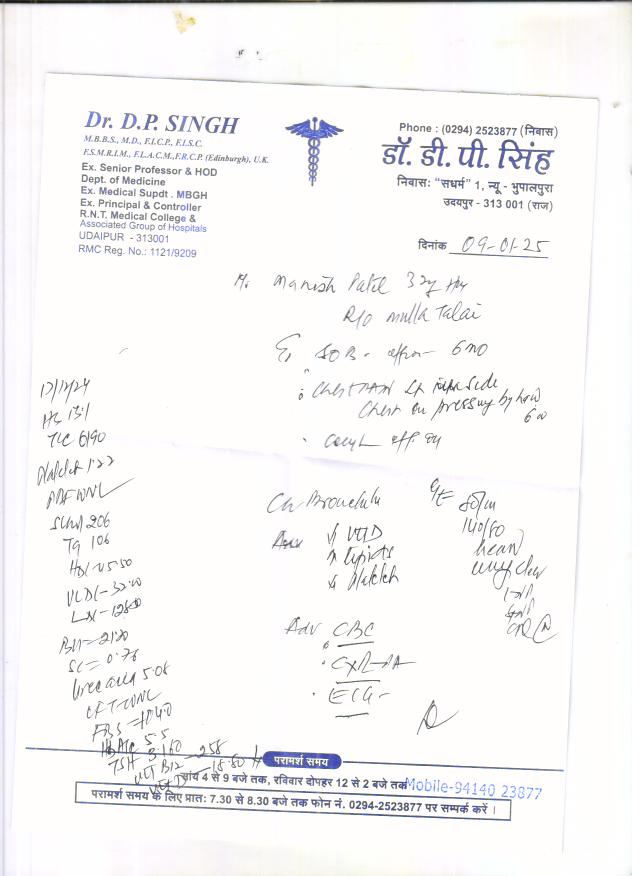 Dr. D.P. SINGH
M.B.B.S., M.D., F.I.C.P., F.I.S.C.
F.S.M.R.I.M., F.I.A.C.M., F.R.C.P. (Edinburgh), U.K.
Ex. Senior Professor & HOD
Dept. of Medicine
Ex. Medical Supdt . MBGH
Ex. Principal & Controller
R.N.T. Medical College &
Associated Group of Hospitals
UDAIPUR - 313001
RMC Reg. No.: 1121/9209
Phone : (0294) 2523877 (निवास)
डॉ. डी. पी. सिंह
निवासः "सधर्म" 1, न्यू - भुपालपुरा
उदयपुर - 313 001 (राज)
दिनांक 09-01-25
Manish Patel 32y
R/o mulla Talai
SOB - 6 mo
Chest side
Chest on pressing by
17/12/24
Hb 13.1
TLC 6190
Platelet 1.22
PBF WNL
206
Tg 106
HDL-45.50
VLDL-
LDL-
-21.20
SC = 0.76
Uric acid 5.06
LFT-WNL
FBS =
HbA1C 5.5
TSH 3.160
VIT B12 - 258
VIT D - 18.80
Ch Bronchitis
80/m
140/80
heart
lungs clear
VITD
Lipids
Platelet
Adv CBC
CXR-PA
ECG-
परामर्श समय
सांय 4 से 9 बजे तक, रविवार दोपहर 12 से 2 बजे तक Mobile-94140 23877
परामर्श समय के लिए प्रातः 7.30 से 8.30 बजे तक फोन नं. 0294-2523877 पर सम्पर्क करें ।